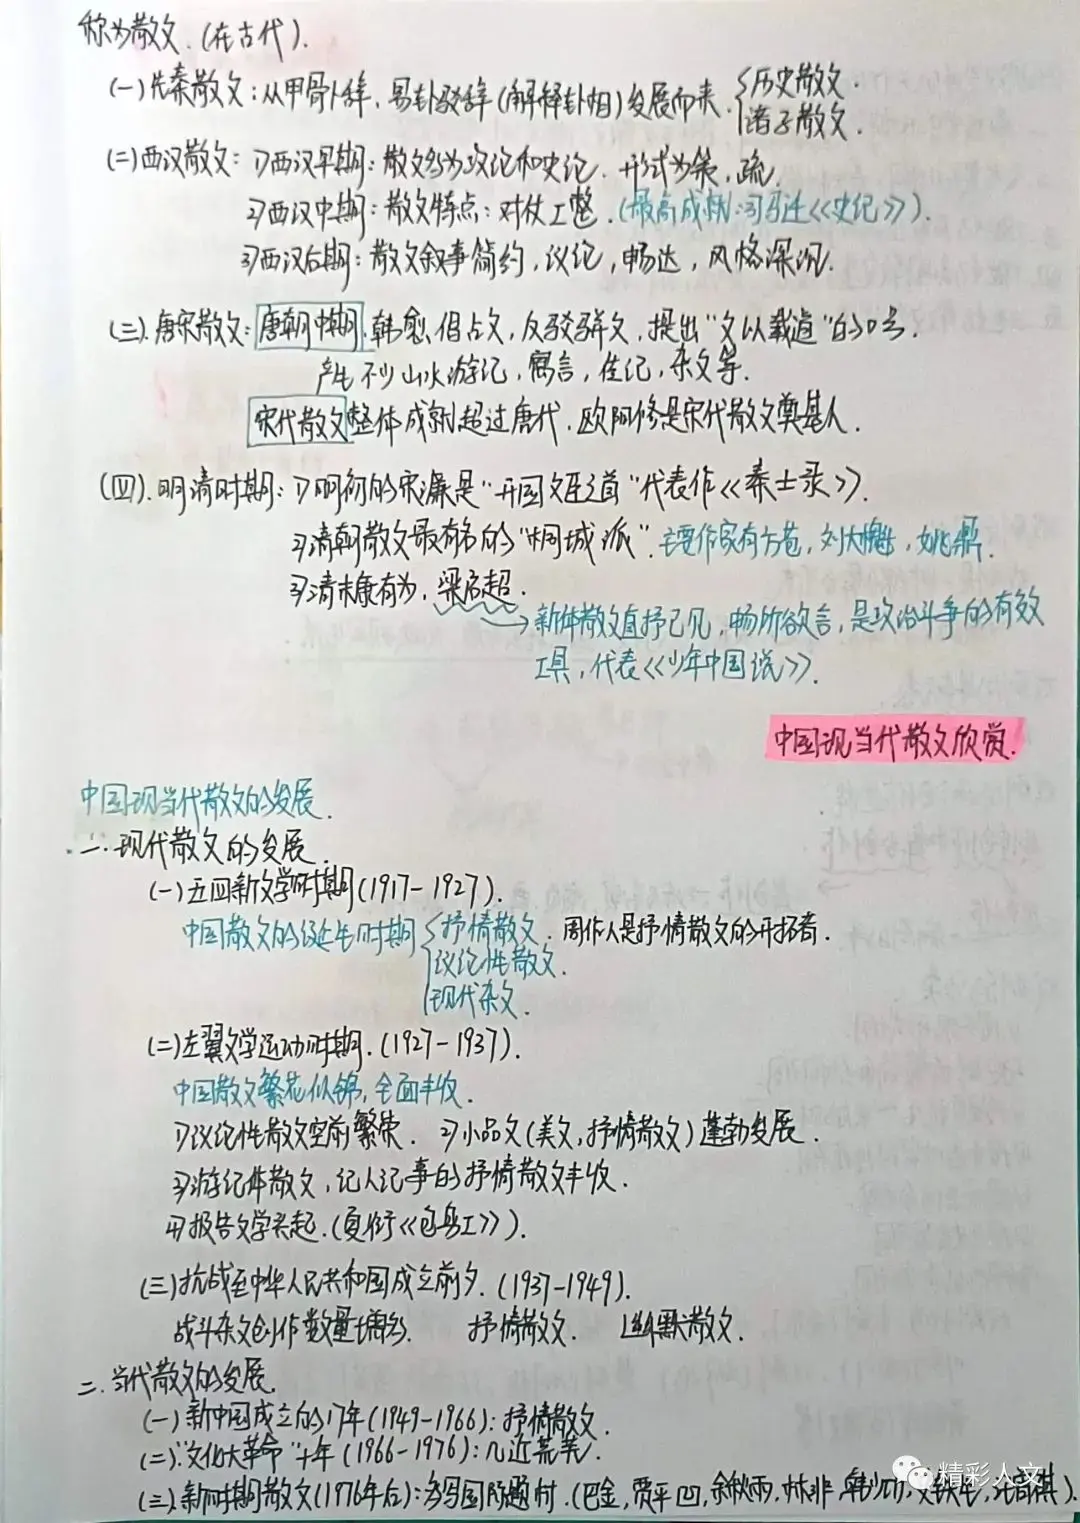 称为散文.(在古代).
(一)先秦散文:从甲骨卜辞,易卦驳辞(解释卦相)发展而来.{历史散文.
诸子散文.
(二)西汉散文:1)西汉早期:散文多为政论和史论.形式为策,疏.
2)西汉中期:散文特点:对仗工整.(最高成就:司马迁《史记》).
3)西汉后期:散文叙事简约,议论,畅达,风格深沉.
(三).唐宋散文:唐朝中期,韩愈倡古文,反驳骈文,提出"文以载道"的口号.
产生不少山水游记,寓言,传记,杂文等.
宋代散文整体成就超过唐代.欧阳修是宋代散文奠基人.
(四).明清时期:1)明初的宋濂是"开国文臣之首"代表作《秦士录》.
2)清朝散文最有名的"桐城派".主要作家有方苞,刘大櫆,姚鼐.
3)清末康有为,梁启超.
新体散文直抒己见,畅所欲言,是政治斗争的有效
工具,代表《少年中国说》.
中国现当代散文欣赏.
中国现当代散文的发展.
一.现代散文的发展.
(一)五四新文学时期(1917-1927).
中国散文的诞生时期{抒情散文.周作人是抒情散文的开拓者.
议论性散文.
现代杂文.
(二)左翼文学运动时期.(1927-1937).
中国散文繁花似锦,全面丰收.
1)议论性散文空前繁荣.2)小品文(美文,抒情散文)蓬勃发展.
3)游记体散文,记人记事的抒情散文丰收.
4)报告文学兴起.(夏衍《包身工》).
(三)抗战至中华人民共和国成立前夕.(1937-1949).
战斗杂文创作数量增多.抒情散文.幽默散文.
二.当代散文的发展.
(一)新中国成立的17年(1949-1966):抒情散文.
(二)."文化大革命"十年(1966-1976):几近荒芜.
(三).新时期散文(1976年后):多写国际题材.(巴金,贾平凹,余秋雨,林非,韩少功,史铁生,汪曾祺).
精彩人文